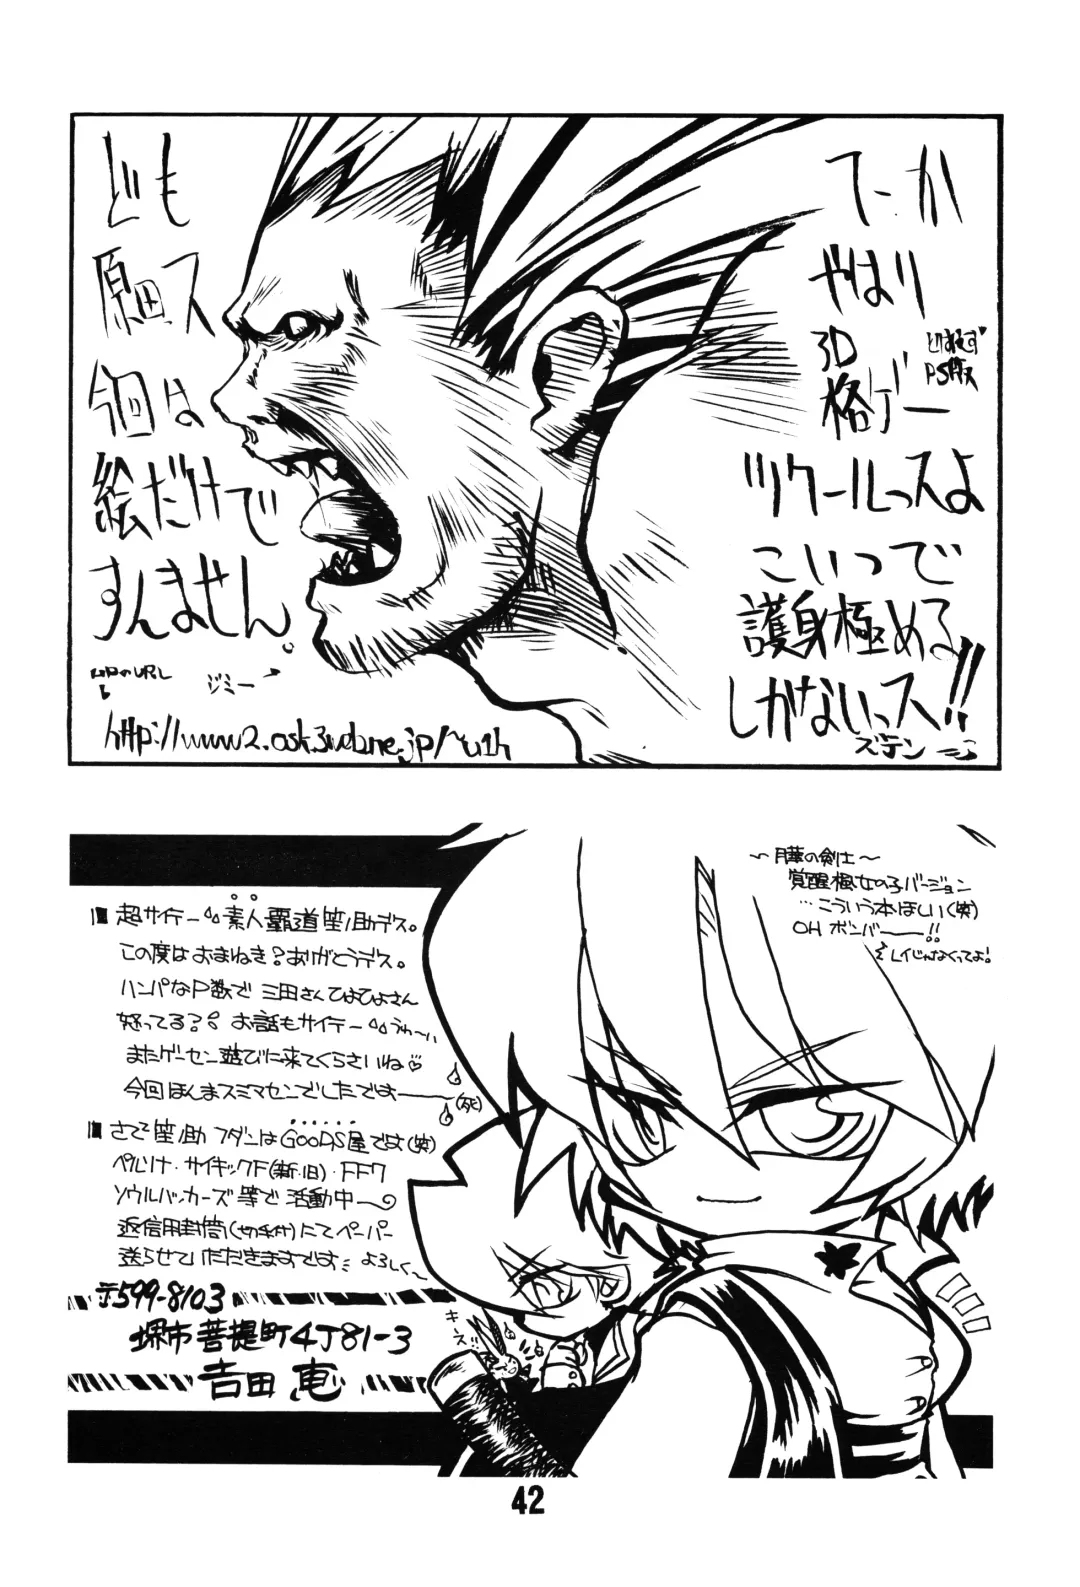 ども
原田ス
今回は
絵だけで
すんません。
HPのURL
ジミー
てーか
やはり
3D
格ゲー
とりあえず
PS版
ツクールっスよ
こいつで
護身極める
しかないっス!!
ズテン
～月華の剣士～
覚醒楓女の子バージョン
…こういう本ほしい(笑)
OH ボンバー――!!
レイじゃなくってよ!
超サイテー 素人覇道笙ノ助デス。
この度はおまねき?ありがとうデス。
ハンパなP数で 三田さんひよひよさん
怒ってる? お話もサイテー うわ～
またゲーセン遊びに来てくらさいね♡
今回ほんまスミマセンでしたです――(死)
さて笙ノ助 フダンはGOODS屋です(笑)
ペルソナ・サイキックF(新・旧)・FF7
ソウルハッカーズ等で活動中
返信用封筒(切手付)にてペーパー
送らせていただきますです よろしく～
〒599-8103
堺市菩提町4丁81-3
吉田 恵
キース!!
42